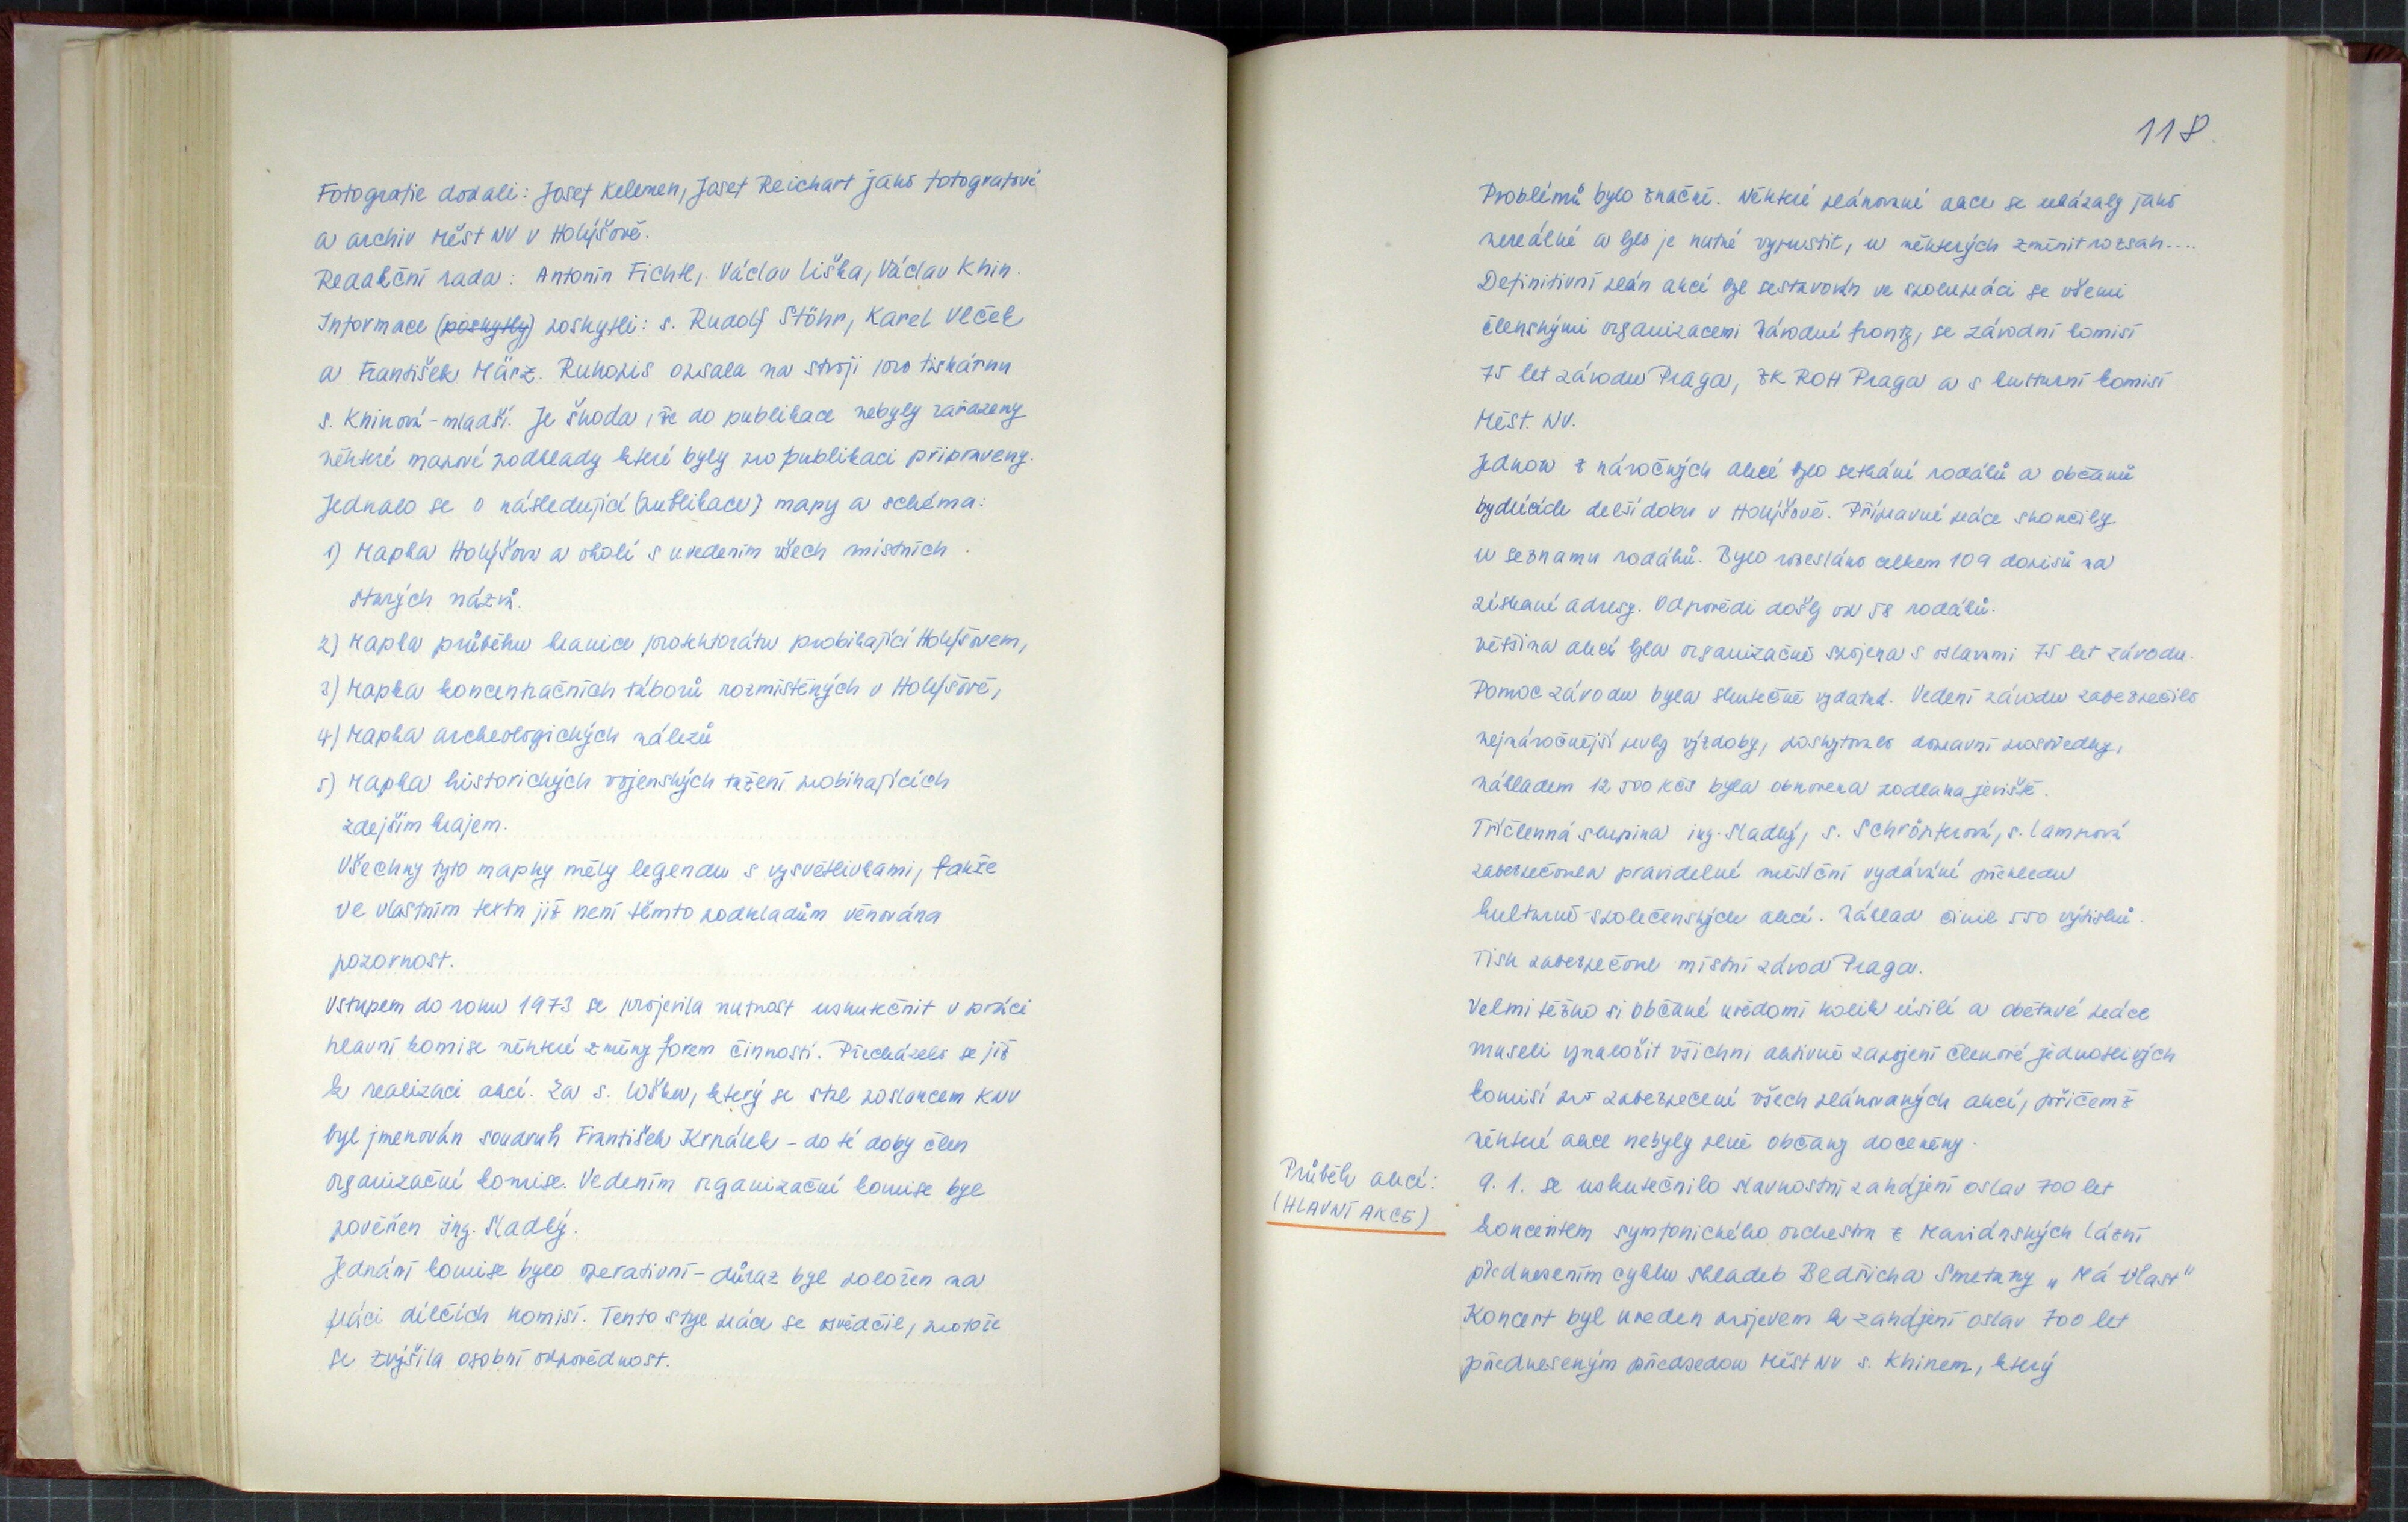 Fotografie dodali: Josef Kelemen, Josef Reichart jako fotografové
a archiv Měst NV v Holýšově.
Redakční rada: Antonín Fichtl, Václav Liška, Václav Khin.
Informace (poskytly) poskytli: s. Rudolf Stöhr, Karel Vlček
a František März. Rukopis opsala na stroji pro tiskárnu
s. Khinová-mladší. Je škoda, že do publikace nebyly zařazeny
některé mapové podklady které byly pro publikaci připraveny.
Jednalo se o následující (publikace) mapy a schéma:
1) Mapka Holýšova a okolí s uvedením všech místních
starých názvů.
2) Mapka průběhu hranice protektorátu probíhající Holýšovem,
3) Mapka koncentračních táborů rozmístěných v Holýšově,
4) Mapka archeologických nálezů
5) Mapka historických vojenských tažení probíhajících
zdejším krajem.
Všechny tyto mapky měly legendu s vysvětlivkami, takže
ve vlastním textu již není těmto podkladům věnována
pozornost.
Vstupem do roku 1973 se projevila nutnost uskutečnit v práci
hlavní komise některé změny forem činnosti. Přecházelo se již
k realizaci akcí. Za s. Lišku, který se stal poslancem KNV
byl jmenován soudruh František Krnáček - do té doby člen
organizační komise. Vedením organizační komise byl
pověřen Ing. Sladký.
Jednání komise bylo operativní - důraz byl položen na
práci dílčích komisí. Tento styl práce se osvědčil, protože
se zvýšila osobní odpovědnost.
118.
Problémů bylo značné. Některé plánované akce se ukázaly jako
nereálné a bylo je nutné vypustit, u některých změnit rozsah....
Definitivní plán akcí byl sestavován ve spolupráci se všemi
členskými organizacemi Národní fronty, se závodní komisí
75 let závodu Praga, ZK ROH Praga a s kulturní komisí
Měst. NV.
Jednou z náročných akcí bylo setkání rodáků a občanů
bydlících delší dobu v Holýšově. Přípravné práce skončily
u seznamu rodáků. Bylo rozesláno celkem 109 dopisů na
získané adresy. Odpovědi došly od 58 rodáků.
Většina akcí byla organizačně spojena s oslavami 75 let závodu.
Pomoc závodu byla skutečně vydatná. Vedení závodu zabezpečilo
nejnáročnější prvky výzdoby, poskytovalo dopravní prostředky,
nákladem 12 500 Kčs byla obnovena podlaha jeviště.
Tříčlenná skupina ing. Sladký, s. Schröpferová, s. Lampová
zabezpečovala pravidelné měsíční vydávání přehledu
kulturně-společenských akcí. Náklad činil 550 výtisků.
Tisk zabezpečoval místní závod Praga.
Velmi těžko si občané uvědomí kolik úsilí a obětavé práce
museli vynaložit všichni aktivně zapojení členové jednotlivých
komisí pro zabezpečení všech plánovaných akcí, přičemž
některé akce nebyly plně občany doceněny.
Průběh akcí:
(HLAVNÍ AKCE)
9. 1. se uskutečnilo slavnostní zahájení oslav 700 let
koncertem symfonického orchestru z Mariánských Lázní
přednesením cyklu skladeb Bedřicha Smetany „Má Vlast"
Koncert byl uveden projevem k zahájení oslav 700 let
předneseným předsedou Měst NV s. Khinem, který